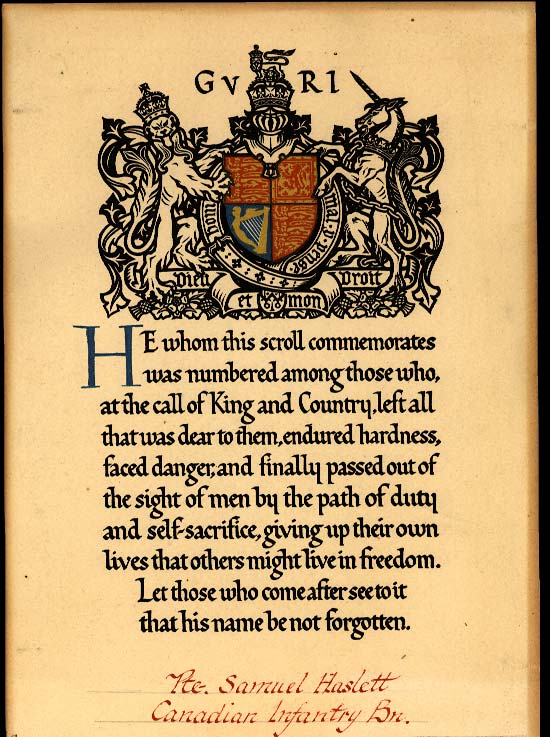 GV RI
honi mal y pense
Dieu et mon Droit
HE whom this scroll commemorates
was numbered among those who,
at the call of King and Country, left all
that was dear to them, endured hardness,
faced danger, and finally passed out of
the sight of men by the path of duty
and self-sacrifice, giving up their own
lives that others might live in freedom.
Let those who come after see to it
that his name be not forgotten.
Pte. Samuel Haslett
Canadian Infantry Bn.